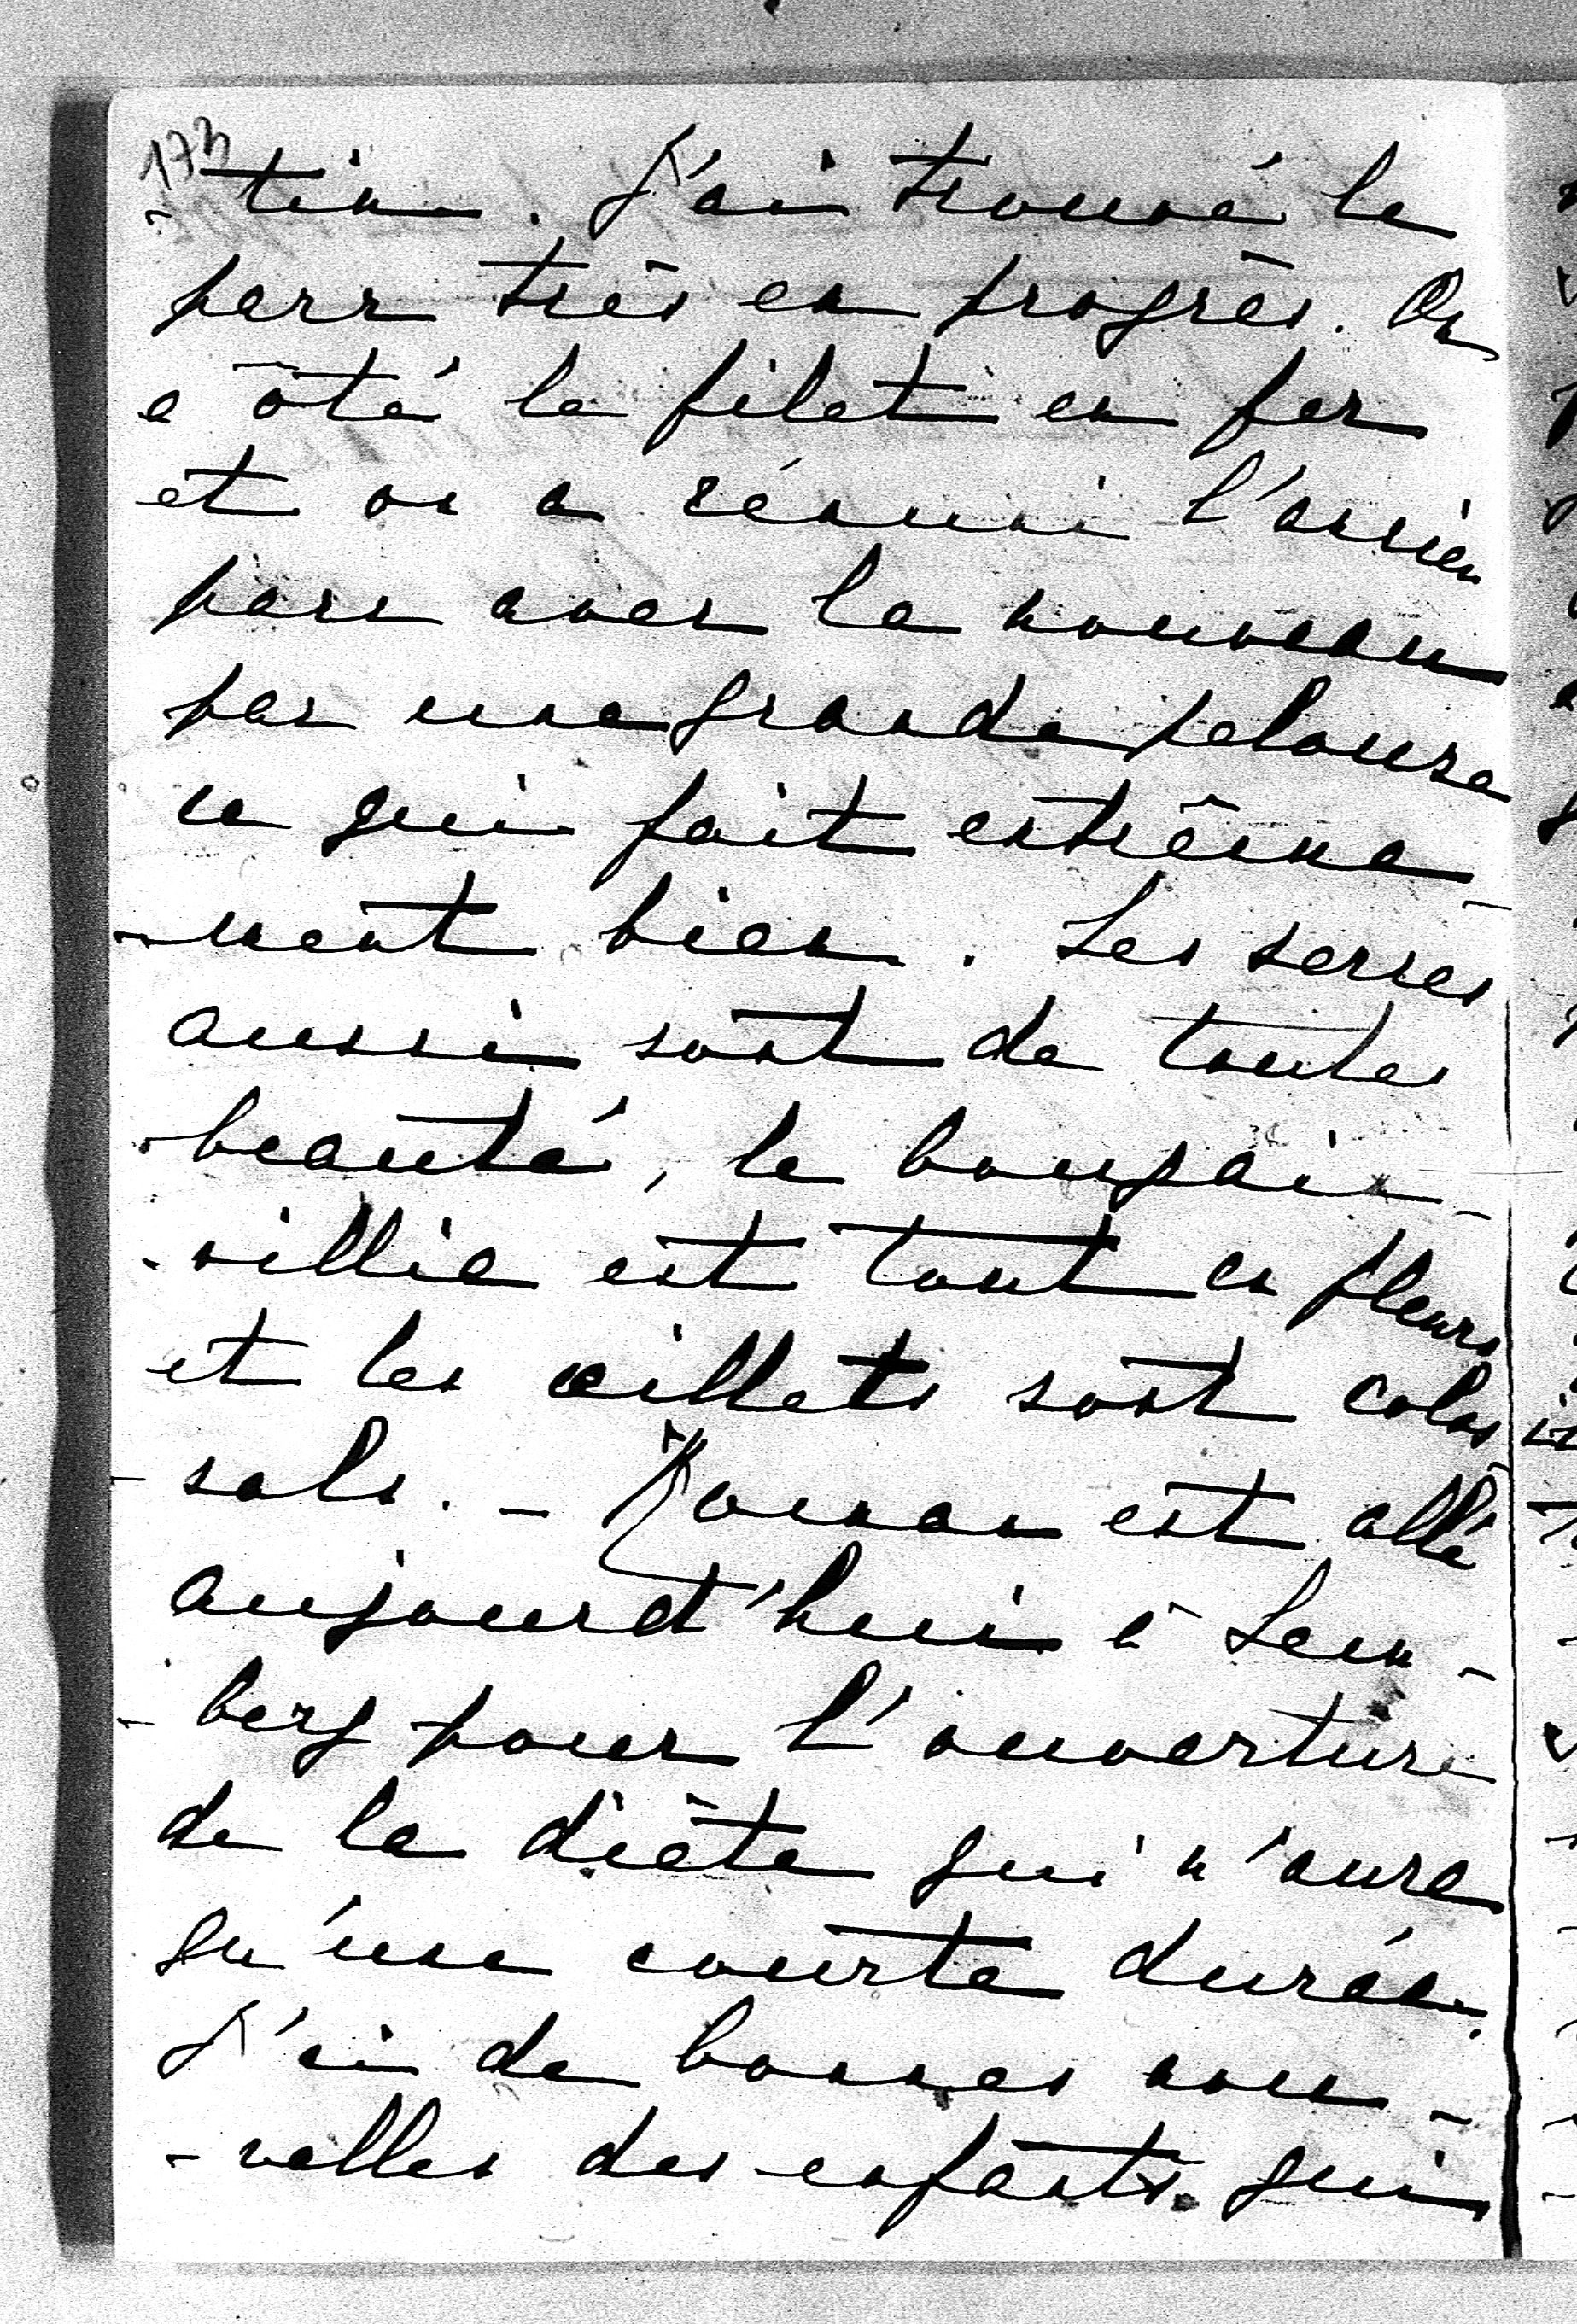 173
-tin. J'ai trouvé le
parc très en progrès. On
a ôté le filet en fer
et on a réuni l'ancien
parc avec le nouveau
par une grande pelouse
ce qui fait extrême-
-ment bien. Les serres
aussi sont de toutes
beauté, le bougain-
-villie est tout en fleurs
et les œillets sont colos
-sals. - Roman est allé
aujourd'hui à Lem-
-berg pour l'ouverture
de la diète qui n'aura
qu'une courte durée.
J'ai de bonnes nou-
-velles des enfants qui